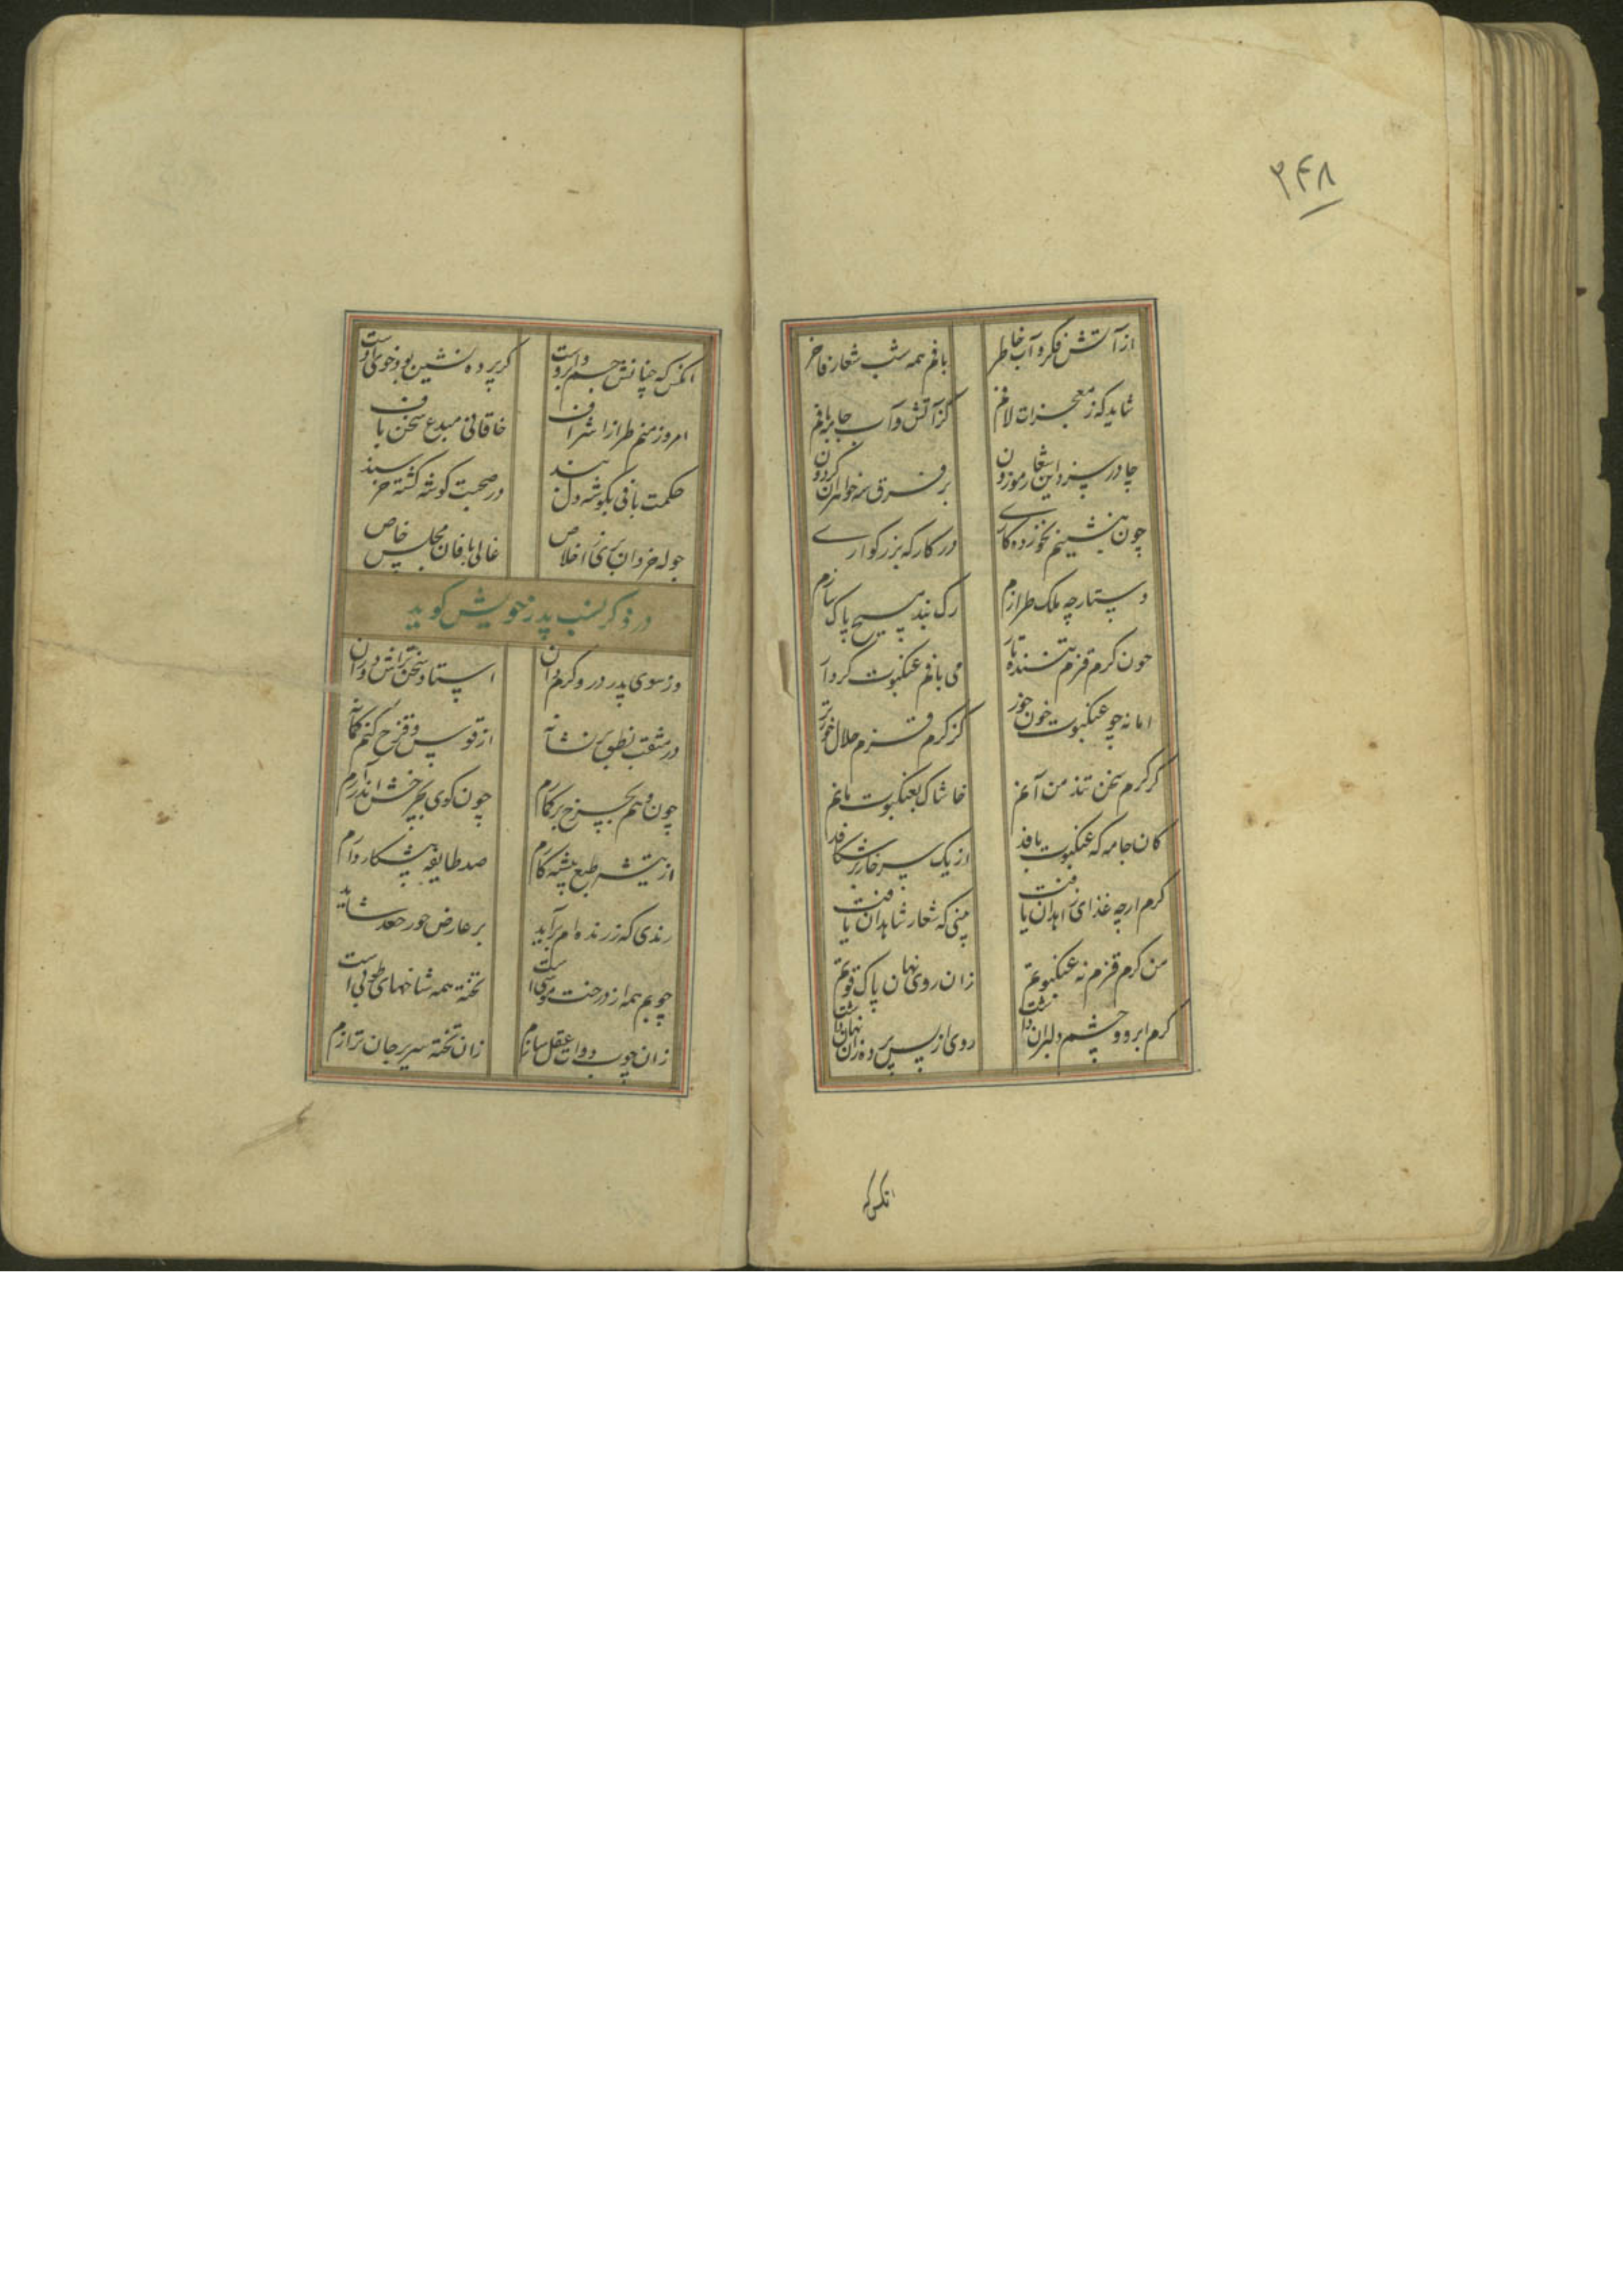 ۲۴۸
از آتش فکر و آب خاطر بافم همه شب شعار فاخر
شاید که ز معجزات لافم کز آتش و آب جامه بافم
چادر سپرد این اشعار موزون بر فرق سه خواهران گردون
چون بنشینم نخوزده کاری در کارکه بزرکواری
دستارچه ملک طرازم رک بند مسیح پاک سازم
چون کرم قزم تننده تار می بافم عنکبوت کردار
اما نه چو عنکبوت خون خور کز کرم قزم حلال خورتر
کر کرم سخن تند من آنم خاشاک بعنکبوت مانم
کان جامه که عنکبوت بافد از یک سر خار برشکافد
کرم ارچه غذای زاهدان یافت بینی که شعار شاهدان یافت
من کرم قزم نه عنکبوتم زان روی نهان پاک قوتم
کرم ابرو و چشم دلبران داشت روی از پس پرده زان نهان داشت
انکس که
انکس که چنانش چشم و ابروست کر پرده نشین بود خوی اوست
امروز منم طراز اشراف خاقانی مبدع سخن باف
حکمت بافی بکوشه دل بند در صحبت کوشه کشته خرسند
جوله خردان برای اخلاص غالی بافان مجلس خاص
در ذکر نسب پدر خویش کوید
وز سوی پدر درودکرم دان استاد سخن تراش دوران
در مثقب نطق بر نشانه از قوس و قزح کنم کمانه
چون وهم بچرخ برکمارم چون کوی بچرخش اندر آرم
از تیشه طبع پیشه کارم صد طایفه پیشکار دارم
رندی که ز رنده ام برآید بر عارض حور جعد شاید
چوبم همه از درخت موسی است تخته همه شاخهای طوبی است
زان چوب دوات عقل سازم زان تخته سریر جان ترازم